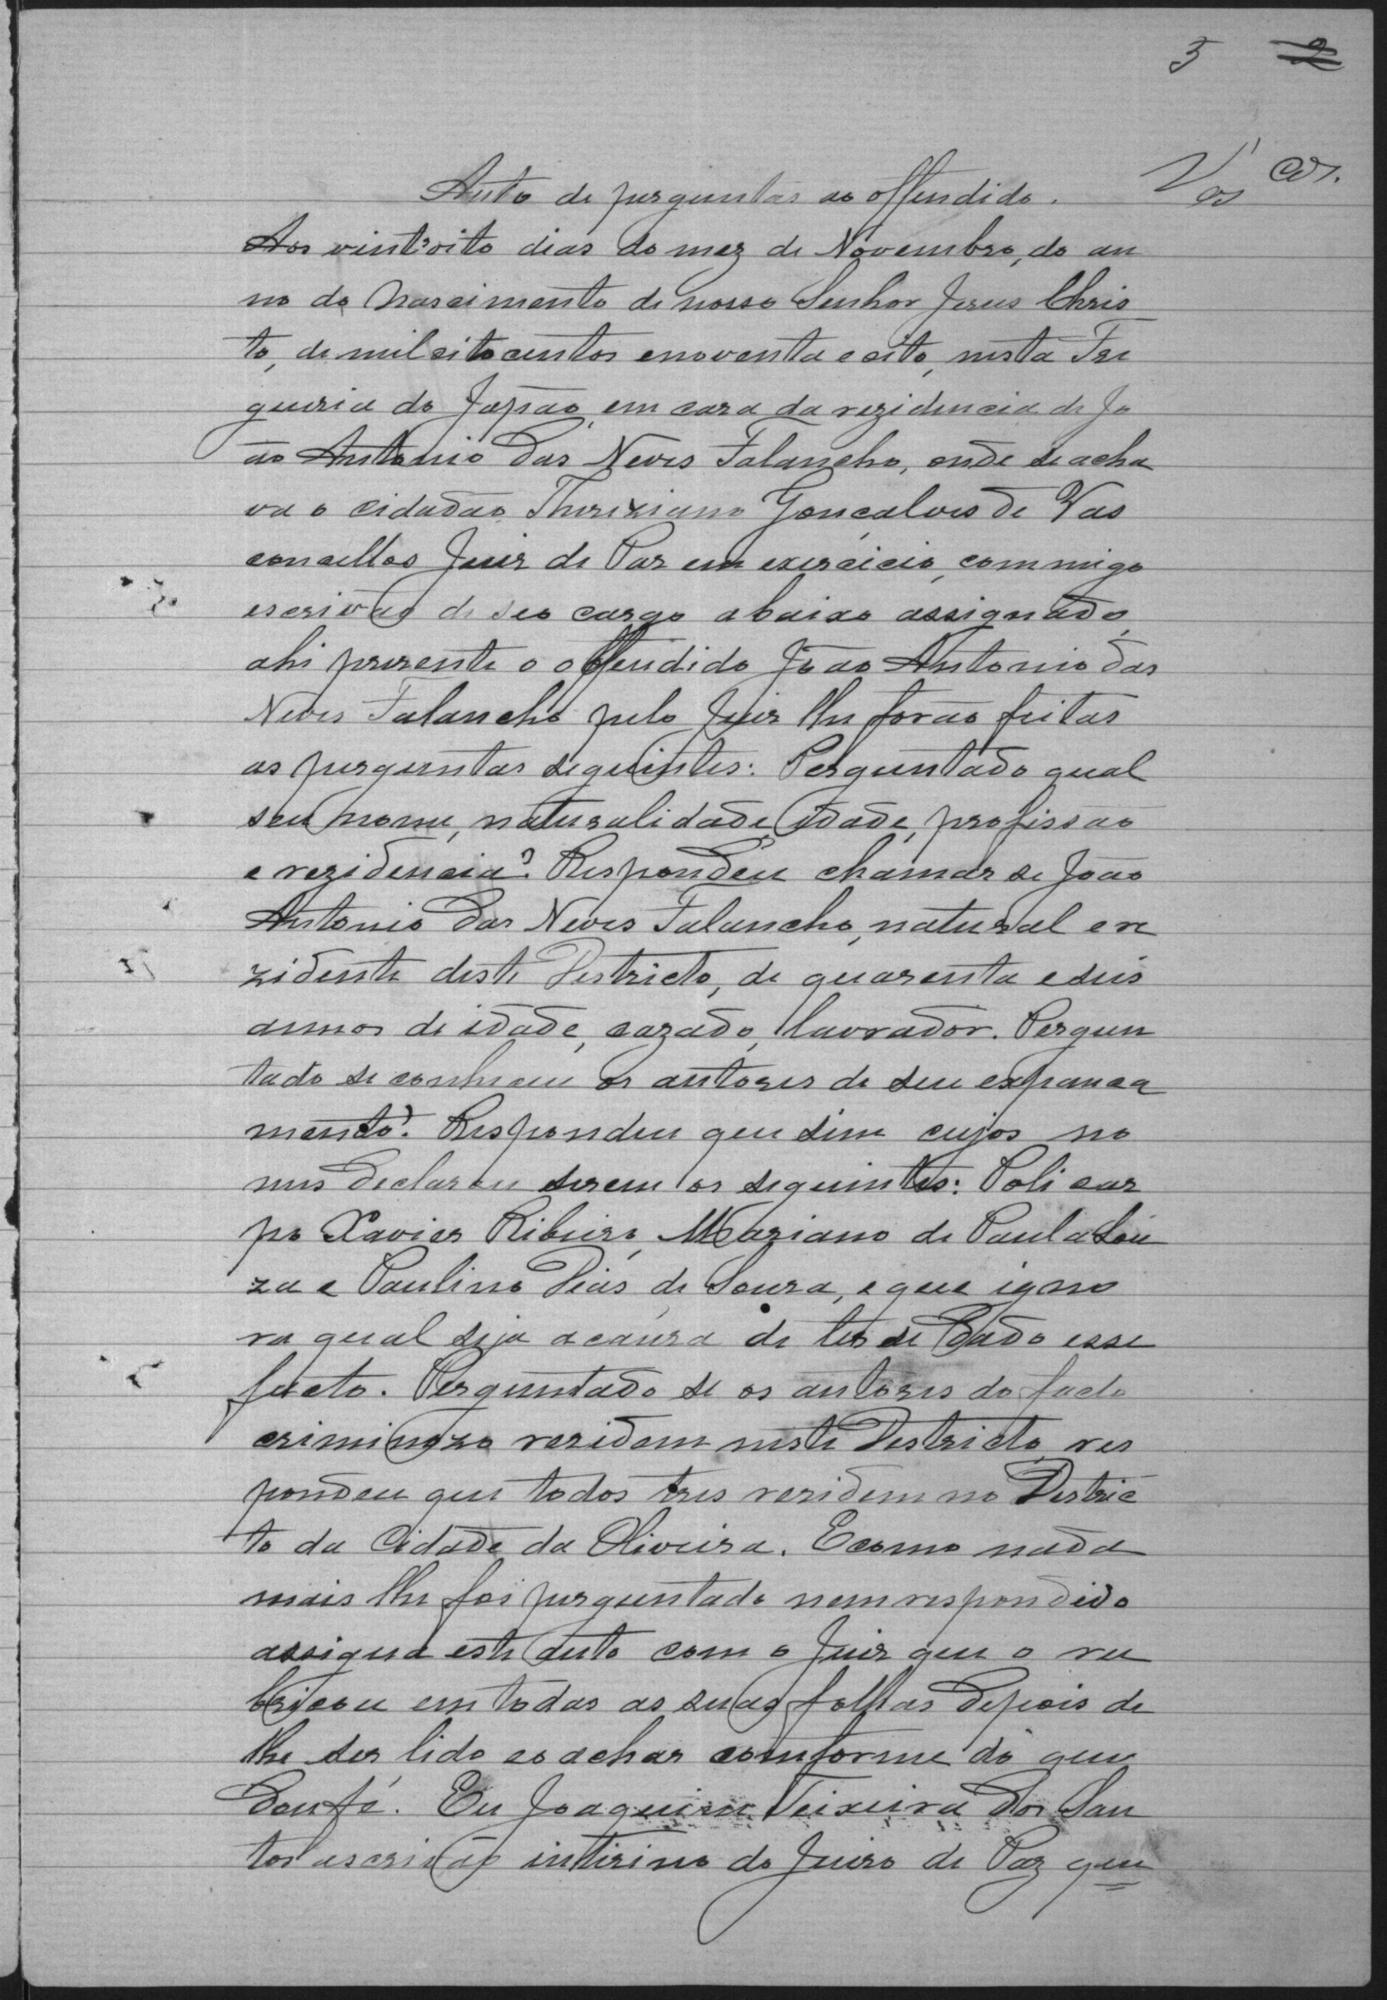 3 2
Vas cos.
Auto de perguntas ao offendido.
Aos vint'oito dias do mez de Novembro, do an
no do Nascimento de nosso Senhor Jesus Chris
to, de mil oito centos e noventa e oito, nesta Fre
guesia do Japão, em casa da rezidencia de Jo
ão Antonio das Neves Falancho, onde se acha
va o cidadão Gonçalves de Vas
concellos Juiz de Paz em exercicio, commigo
escrivão de seo cargo abaixo assignado,
ahi prezente o offendido João Antonio das
Neves Falancho pelo Juiz lhe forão feitas
as perguntas seguintes: Perguntado qual
seu nome, naturalidade, idade, profissão
e rezidencia? Respondeu chamar se João
Antonio das Neves Falancho, natural e re
zidente deste Destricto, de quarenta e seis
annos de idade, cazado, lavrador. Pergun
tado se conheceu os autores de seu espanca
mento? Respondeu que sim cujos no
mes declarou serem os seguintes: Policar
po Xavier Ribeiro, Mariano de Paula Sou
za e Paulino Dias de Souza, e que igno
ra qual seja a causa de ter se dado esse
facto. Perguntado se os autores do facto
criminozo rezidem neste Destricto, res
pondeu que todos tres rezidem no Destric
to da Cidade da Oliveira. E como nada
mais lhe foi perguntado nem respondido
assigna este auto com o Juiz que o ru
bricou em todas as suas folhas depois de
lhe ser lido e o achar comforme do que
dou fé. Eu Joaquim Teixeira dos San
tos escrivão intirino do Juizo de Paz que